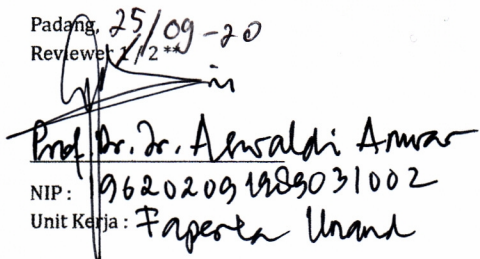 Padang, 25/09-20
Reviewer 1 / 2 **
Prof. Dr. Ir. Aswaldi Anwar
NIP : 196202091989031002
Unit Kerja : Faperta Unand